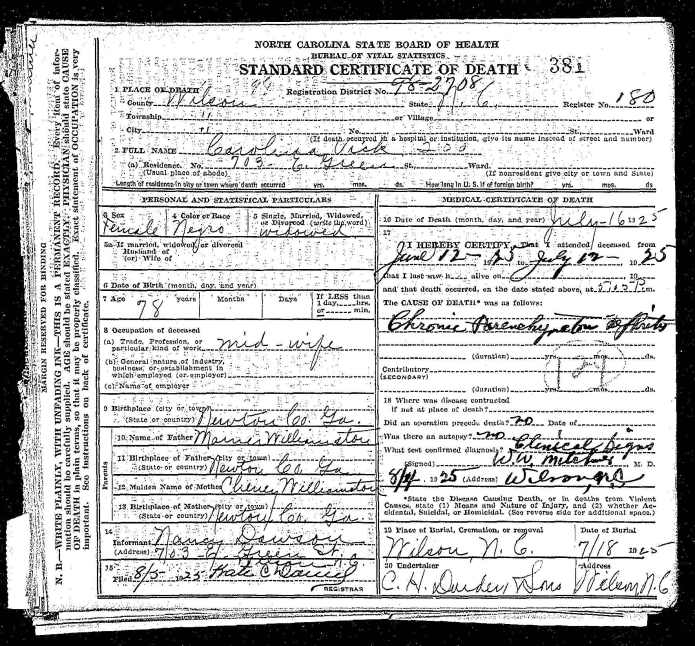 NORTH CAROLINA STATE BOARD OF HEALTH
BUREAU OF VITAL STATISTICS
STANDARD CERTIFICATE OF DEATH 381
1 PLACE OF DEATH
Registration District No. 98-2708
County Wilson State N. C. Register No. 180
Township or Village or
City No. St. Ward
(If death occurred in a hospital or institution, give its name instead of street and number)
2 FULL NAME Carolina Vick
(a) Residence. No. 703 E. Green St. Ward.
(Usual place of abode) (If nonresident give city or town and State)
Length of residence in city or town where death occurred yrs. mos. ds. How long in U. S. if of foreign birth? yrs. mos. ds
PERSONAL AND STATISTICAL PARTICULARS
3 Sex 4 Color or Race 5 Single, Married, Widowed, or Divorced (write the word)
Female Negro widowed
5a If married, widowed, or divorced
Husband of
(or) Wife of
6 Date of Birth (month, day, and year)
7 Age 78 years Months Days If LESS than 1 day, hrs. or min.
8 Occupation of deceased
(a) Trade, Profession, or particular kind of work mid-wife
(b) General nature of industry, business, or establishment in which employed (or employer)
(c) Name of employer
9 Birthplace (city or town)
(State or country) Newton Co. Ga.
10 Name of Father Williamston
11 Birthplace of Father (city or town)
(State or country) Newton Co. Ga.
12 Maiden Name of Mother Cheney Williamston
13 Birthplace of Mother (city or town)
(State or country) Newton Co. Ga.
Parents
14 Informant Nancy Dawson
(Address) 703 E. Green St.
15 Filed 8/5 1925
REGISTRAR
MEDICAL CERTIFICATE OF DEATH
16 Date of Death (month, day, and year) July-16 1925
17
I HEREBY CERTIFY, That I attended deceased from
June 12 1925 to July 12 1925
that I last saw h alive on 19
and that death occurred, on the date stated above, at m.
The CAUSE OF DEATH* was as follows:
Chronic
(duration) yrs. mos. ds.
129
Contributory
(SECONDARY)
(duration) yrs. mos. ds.
18 Where was disease contracted
if not at place of death?
Did an operation precede death? no Date of
Was there an autopsy? no
What test confirmed diagnosis? Clinical Signs
(Signed) W. W. Mitchner M. D.
1925 (Address) Wilson NC
*State the Disease Causing Death, or in deaths from Violent Causes, state (1) Means and Nature of Injury, and (2) whether Accidental, Suicidal, or Homicidal. (See reverse side for additional space.)
19 Place of Burial, Cremation, or removal Date of Burial
Wilson, N. C. 7/18 1925
20 Undertaker Address
C. H. Darden & Sons Wilson N. C
MARGIN RESERVED FOR BINDING
N. B.—WRITE PLAINLY, WITH UNFADING INK—THIS IS A PERMANENT RECORD. Every item of information should be carefully supplied. AGE should be stated EXACTLY. PHYSICIAN should state CAUSE OF DEATH in plain terms, so that it may be properly classified. Exact statement of OCCUPATION is very important. See instructions on back of certificate.